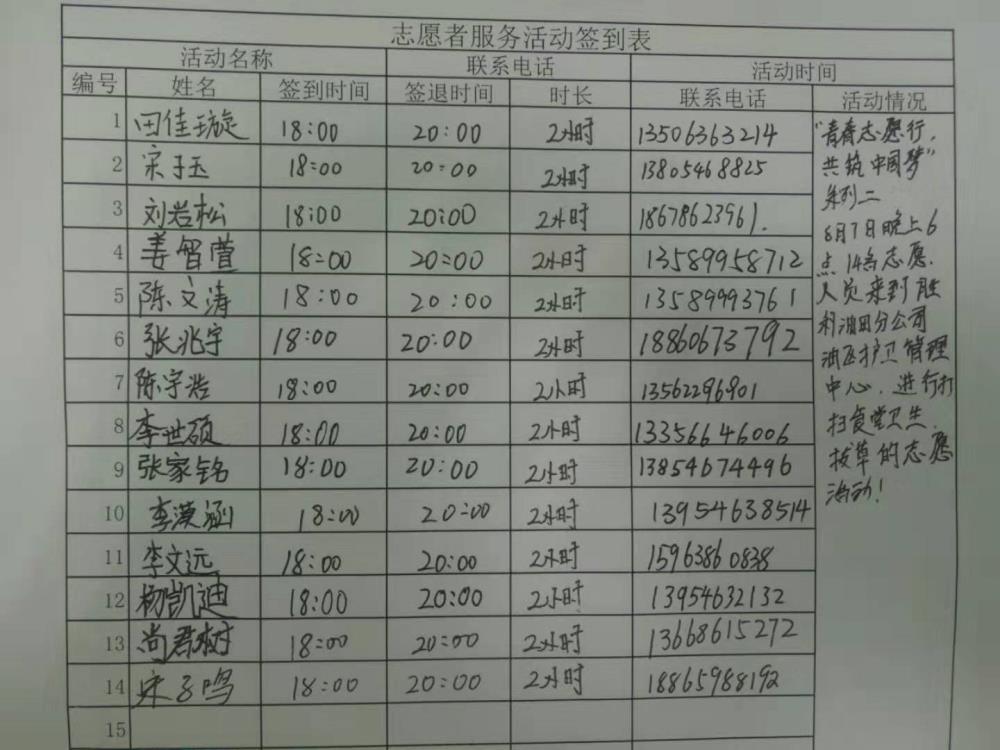 志愿者服务活动签到表
活动名称 联系电话 活动时间
编号 姓名 签到时间 签退时间 时长 联系电话 活动情况
1 田佳璇 18:00 20:00 2小时 13506363214
2 宋子玉 18:00 20:00 2小时 13805468825
3 刘岩松 18:00 20:00 2小时 18678623961.
4 姜智萱 18:00 20:00 2小时 13589958712
5 陈文涛 18:00 20:00 2小时 13589993761
6 张兆宇 18:00 20:00 2小时 18860673792
7 陈宇浩 18:00 20:00 2小时 13562296901
8 李世硕 18:00 20:00 2小时 13356646006
9 张家铭 18:00 20:00 2小时 13854674496
10 李漠涵 18:00 20:00 2小时 13954638514
11 李文远 18:00 20:00 2小时 15963860838
12 杨凯迪 18:00 20:00 2小时 13954632132
13 尚君树 18:00 20:00 2小时 13668615272
14 宋子鸣 18:00 20:00 2小时 18865988192
15
"青春志愿行,
共筑中国梦"
系列二
8月7日晚上6
点14名志愿
人员来到胜
利油田分公司
油区护卫管理
中心,进行打
扫食堂卫生,
拔草的志愿
活动!